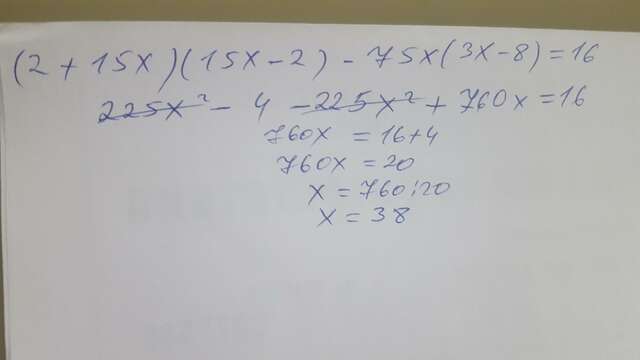 (2 + 15x)(15x - 2) - 75x(3x - 8) = 16
225x² - 4 - 225x² + 760x = 16
760x = 16 + 4
760x = 20
x = 760 : 20
x = 38